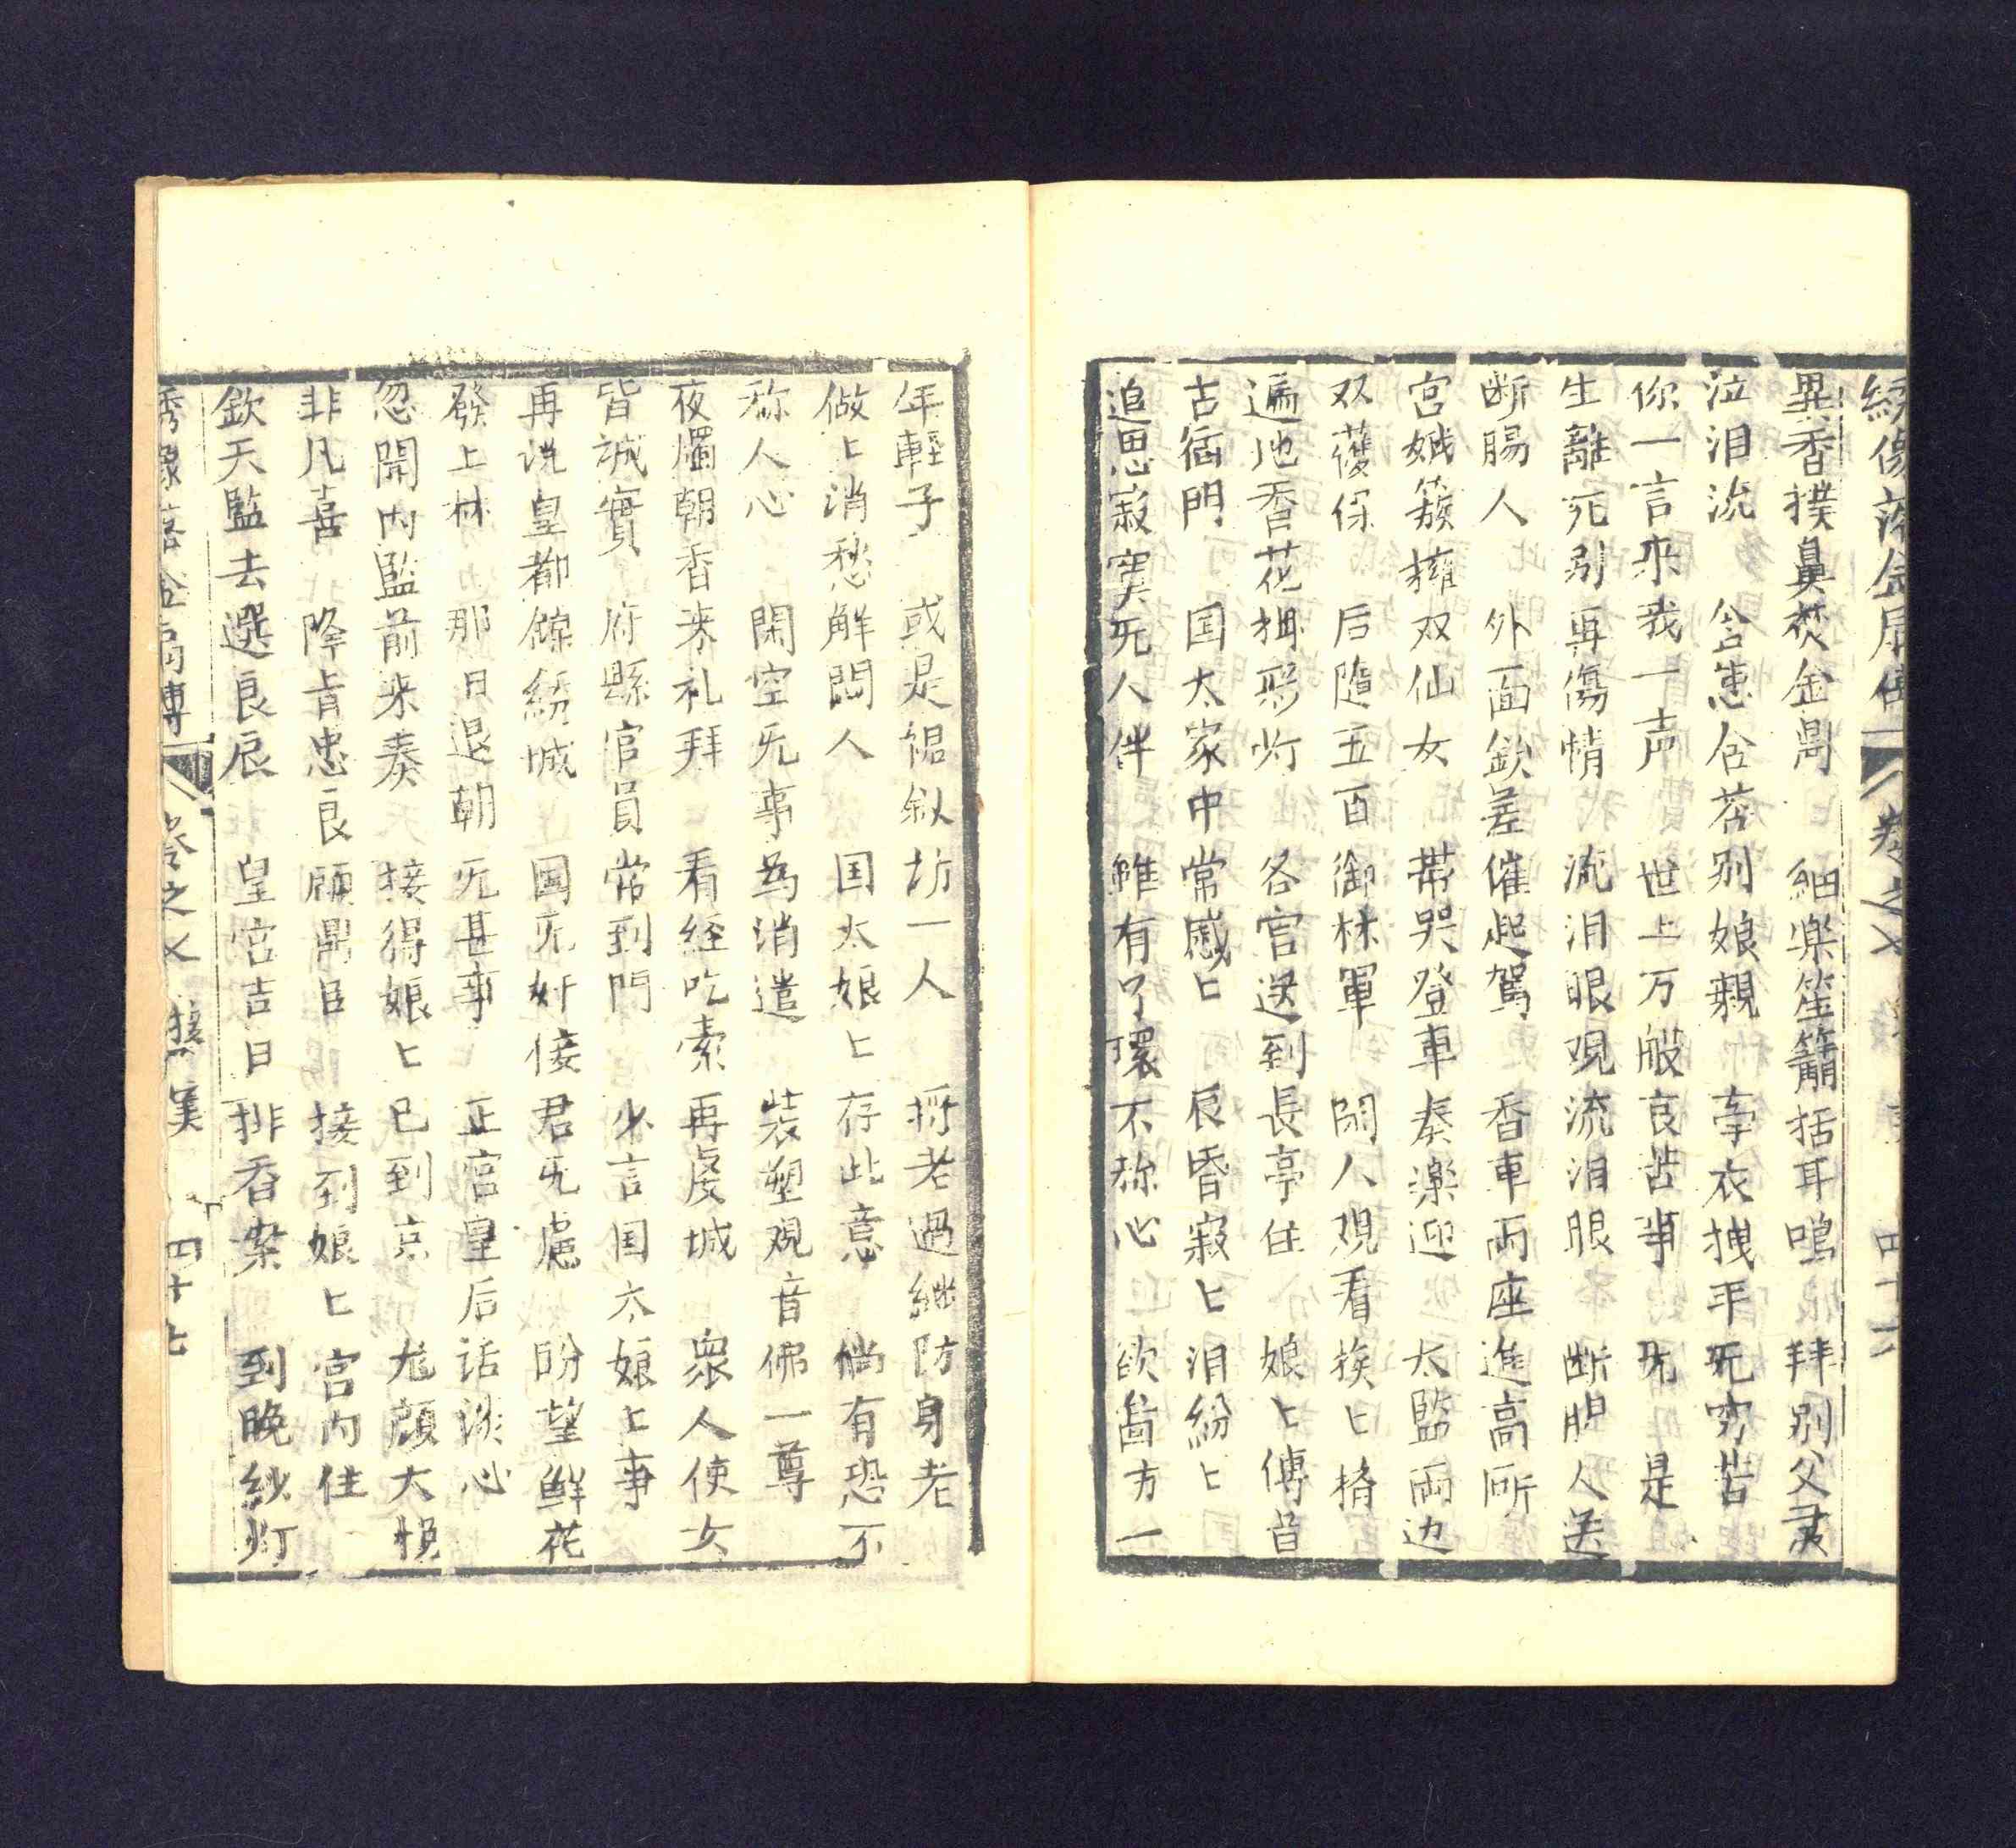 異香撲鼻焚金鼎 細楽笙簫括耳鳴 拜別父君
泣泪流 含悲含苦別娘親 牽衣拽手无穷苦
你一言来我一声 世上万般哀苦事 无是
生離死别再傷情 流泪眼观流泪眼 断腸人送
断腸人 外面欽差催起駕 香車両座進高㕔
宮娥簇擁双仙女 帶哭登車奏楽迎 太監両边
双護保 后随五百御林軍 閙人观看挨ヒ擠
遍地香花 灯 各官送到長亭住 娘ヒ傳旨
古衙門 国太家中常感ヒ 辰昏寂ヒ泪紛ヒ
追思寂寞无人伴 雖有了环不称心 欲啚方一
年輕子 或是裙釵訪一人 将老過継防身老
做ヒ消愁解悶人 国太娘ヒ存此意 倘有恐不
称人心 閑空无事為消遣 裝塑观音佛一尊
夜燭朝香来礼拜 看経吃素再虔城 衆人使女
皆誠實 府縣官員常到門 少言国太娘ヒ事
再说皇都錦綉城 国无奸佞君无慮 盼望鲜花
發上林 那日退朝无甚事 正宮皇后話淡心
忽聞内監前来奏 接得娘ヒ已到京 龙顔大悦
非凡喜 降旨忠良顧鼎臣 接到娘ヒ宮内住
欽天監去選良辰 皇宮吉日排香案 到晚紗灯
卷之乂 四十七